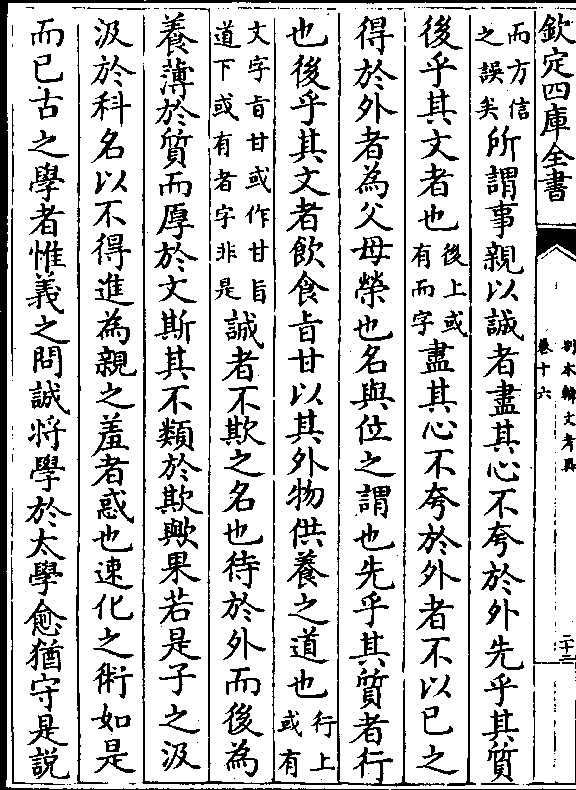 欽定四庫全書
別本韓文考異
卷十六
二十三
而方信之誤矣所謂事親以誠者盡其心不夸於外先乎其質
後乎其文者也後上或有而字盡其心不夸於外者不以已之
得於外者為父母榮也名與位之謂也先乎其質者行
也後乎其文者飲食㫖甘以其外物供養之道也行上或有
文字㫖甘或作甘㫖道下或有者字非是誠者不欺之名也待於外而後為
養薄於質而厚於文斯其不類於欺歟果若是子之汲
汲於科名以不得進為親之羞者惑也速化之術如是
而已古之學者惟義之問誠將學於太學愈猶守是説